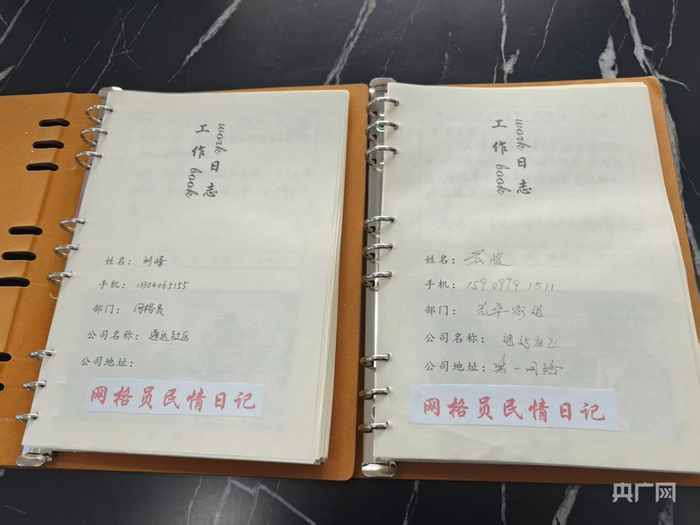 工作日志
work book
姓名：刘峰
手机：13304065155
部门：网格员
公司名称：通达社区
公司地址：
网格员民情日记
工作日志
work book
姓名：
手机：15909791511
部门：光华街道
公司名称：通达社区
公司地址：第一网格
网格员民情日记
央广网